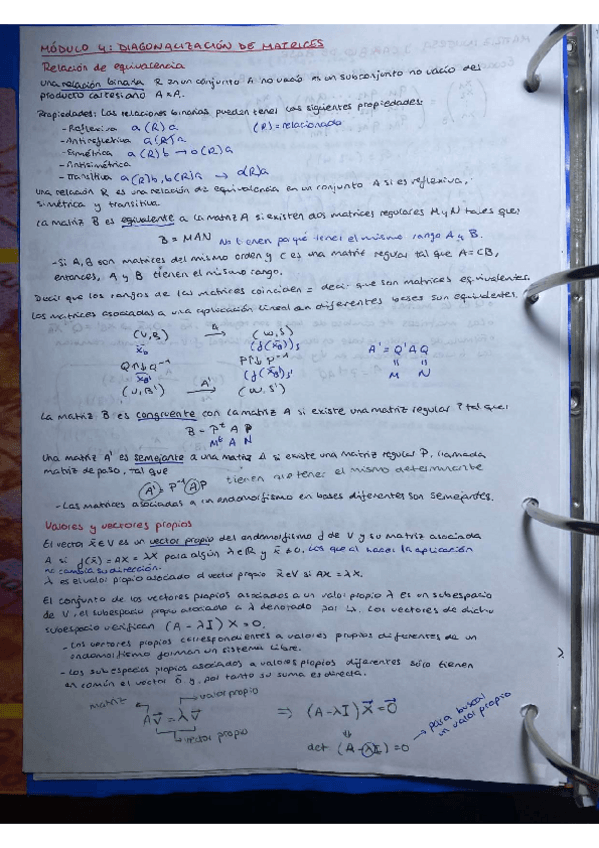 MÓDULO 4: DIAGONALIZACIÓN DE MATRICES
Relación de equivalencia
Una relación binaria R en un conjunto A no vacío es un subconjunto no vacío del
producto cartesiano A×A.
Propiedades: Las relaciones binarias pueden tener las siguientes propiedades:
- Reflexiva a(R)a (R)=relacionado
- Antirreflexiva a(R)a
- Simétrica a(R)b → b(R)a
- Antisimétrica
- Transitiva a(R)b, b(R)a → a(R)a
Una relación R es una relación de equivalencia en un conjunto A si es reflexiva,
simétrica y transitiva.
La matriz B es equivalente a la matriz A si existen dos matrices regulares M y N tales que:
B = MAN No tienen por qué tener el mismo rango A y B.
- Si A, B son matrices del mismo orden y C es una matriz regular tal que A = CB,
entonces, A y B tienen el mismo rango.
Decir que los rangos de las matrices coinciden = decir que son matrices equivalentes.
Las matrices asociadas a una aplicación lineal en diferentes bases son equivalentes.
(V,B) A→ (W,S)
x̄B (f(x̄B))S A' = Q'AQ
Q↑↓Q⁻¹ P↑↓P⁻¹ M N
x̄B' (f(x̄B))S'
(V,B') A'→ (W,S')
La matriz B es congruente con la matriz A si existe una matriz regular P tal que:
B = Pᵗ A P
Mᵗ A N
Una matriz A' es semejante a una matriz A si existe una matriz regular P, llamada
matriz de paso, tal que
A' = P⁻¹AP tienen que tener el mismo determinante
- Las matrices asociadas a un endomorfismo en bases diferentes son semejantes.
Valores y vectores propios
El vector x̄∈V es un vector propio del endomorfismo f de V y su matriz asociada
A si f(x̄) = AX = λX para algún λ∈R y x̄ ≠ 0. Los que al hacer la aplicación
no cambia su dirección.
λ es el valor propio asociado al vector propio x̄∈V si AX = λX.
El conjunto de los vectores propios asociados a un valor propio λ es un subespacio
de V, el subespacio propio asociado a λ denotado por Lλ. Los vectores de dicho
subespacio verifican (A - λI) X = 0.
- Los vectores propios correspondientes a valores propios diferentes de un
endomorfismo forman un sistema libre.
- Los subespacios propios asociados a valores propios diferentes sólo tienen
en común el vector 0̄ y, por tanto su suma es directa.
matriz valor propio
Av⃗ = λv⃗ ⇒ (A-λI)X⃗ = 0⃗
vector propio
det (A-λI) = 0 → para buscar
un valor propio